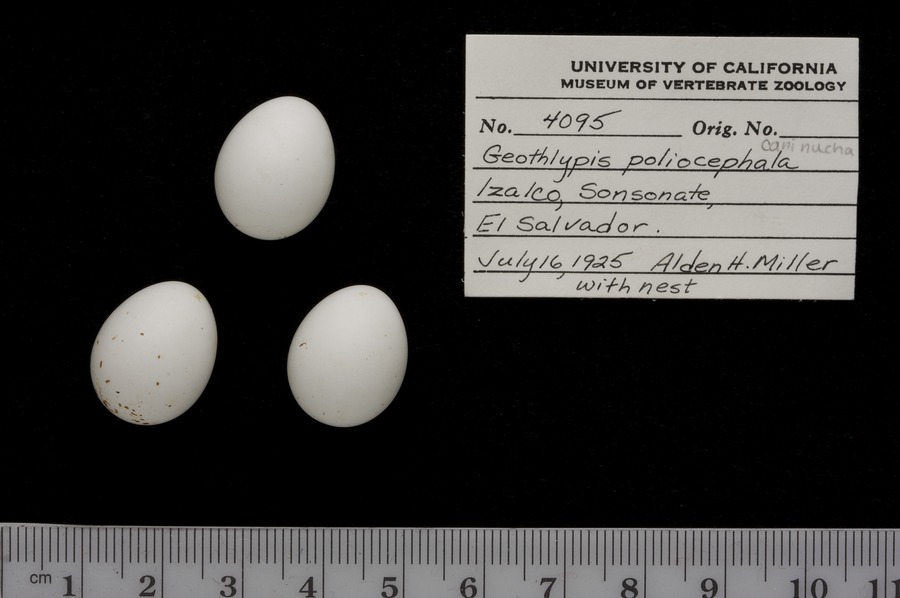 UNIVERSITY OF CALIFORNIA
MUSEUM OF VERTEBRATE ZOOLOGY
No. 4095 Orig. No.
caninucha
Geothlypis poliocephala
Izalco, Sonsonate,
El Salvador.
July 16, 1925 Alden H. Miller
with nest
cm 1 2 3 4 5 6 7 8 9 10 11